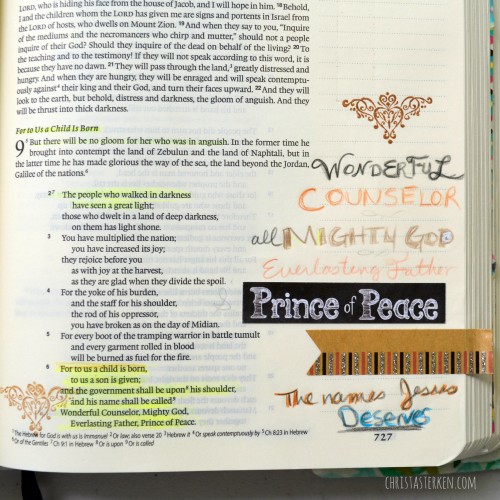 LORD, who is hiding his face from the house of Jacob, and I will hope in him. 18 Behold,
I and the children whom the LORD has given me are signs and portents in Israel from
the LORD of hosts, who dwells on Mount Zion. 19 And when they say to you, “Inquire
of the mediums and the necromancers who chirp and mutter,” should not a people
inquire of their God? Should they inquire of the dead on behalf of the living? 20 To
the teaching and to the testimony! If they will not speak according to this word, it is
because they have no dawn. 21 They will pass through the land,3 greatly distressed and
hungry. And when they are hungry, they will be enraged and will speak contemptu-
ously against4 their king and their God, and turn their faces upward. 22 And they will
look to the earth, but behold, distress and darkness, the gloom of anguish. And they
will be thrust into thick darkness.
For to Us a Child Is Born
9 But there will be no gloom for her who was in anguish. In the former time he
brought into contempt the land of Zebulun and the land of Naphtali, but in
the latter time he has made glorious the way of the sea, the land beyond the Jordan,
Galilee of the nations.6
2 7 The people who walked in darkness
have seen a great light;
those who dwelt in a land of deep darkness,
on them has light shone.
3 You have multiplied the nation;
you have increased its joy;
they rejoice before you
as with joy at the harvest,
as they are glad when they divide the spoil.
4 For the yoke of his burden,
and the staff for his shoulder,
the rod of his oppressor,
you have broken as on the day of Midian.
5 For every boot of the tramping warrior in battle tumult
and every garment rolled in blood
will be burned as fuel for the fire.
6 For to us a child is born,
to us a son is given;
and the government shall be upon8 his shoulder,
and his name shall be called9
Wonderful Counselor, Mighty God,
Everlasting Father, Prince of Peace.
1 The Hebrew for God is with us is Immanuel 2 Or law; also verse 20 3 Hebrew it 4 Or speak contemptuously by 5 Ch 8:23 in Hebrew
6 Or of the Gentiles 7 Ch 9:1 in Hebrew 8 Or is upon 9 Or is called
WONDERFUL
COUNSELOR
all MIGHTY GOD
Everlasting Father
Prince of Peace
The names Jesus
Deserves
727
CHRISTASTERKEN.COM